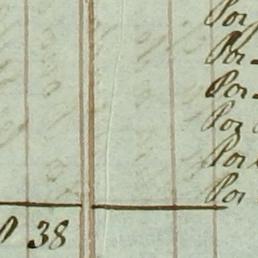 Por
Por
Por
Por
Por
Por
38